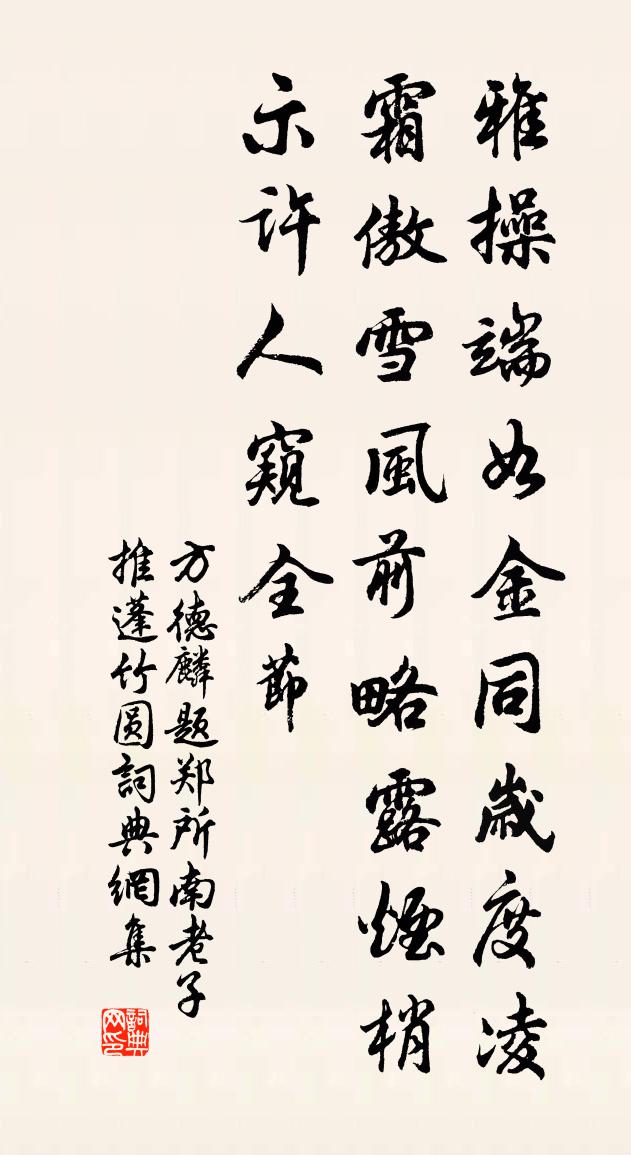 雅操端如金同歲度凌
霜傲雪風前略露煙梢
示許人窺全節
方德麟题郑所南老子
推蓬竹圆詞典網集
詞典网印